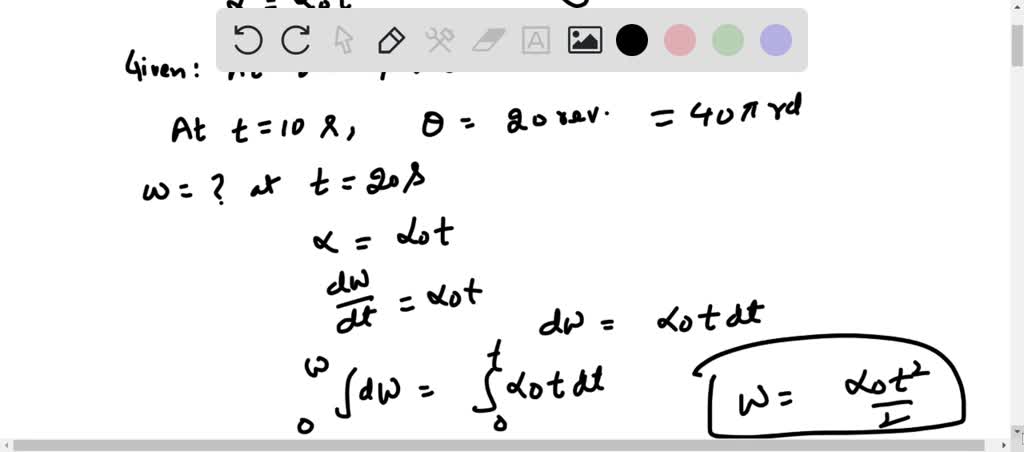 α = α₀t
Given: At
At t = 10 s, θ = 20 rev. = 40π rd
ω = ? at t = 20s
α = α₀t
dω/dt = α₀t
dω = α₀ t dt
₀∫^ω dω = ₀∫^t α₀ t dt
ω = α₀t²/2